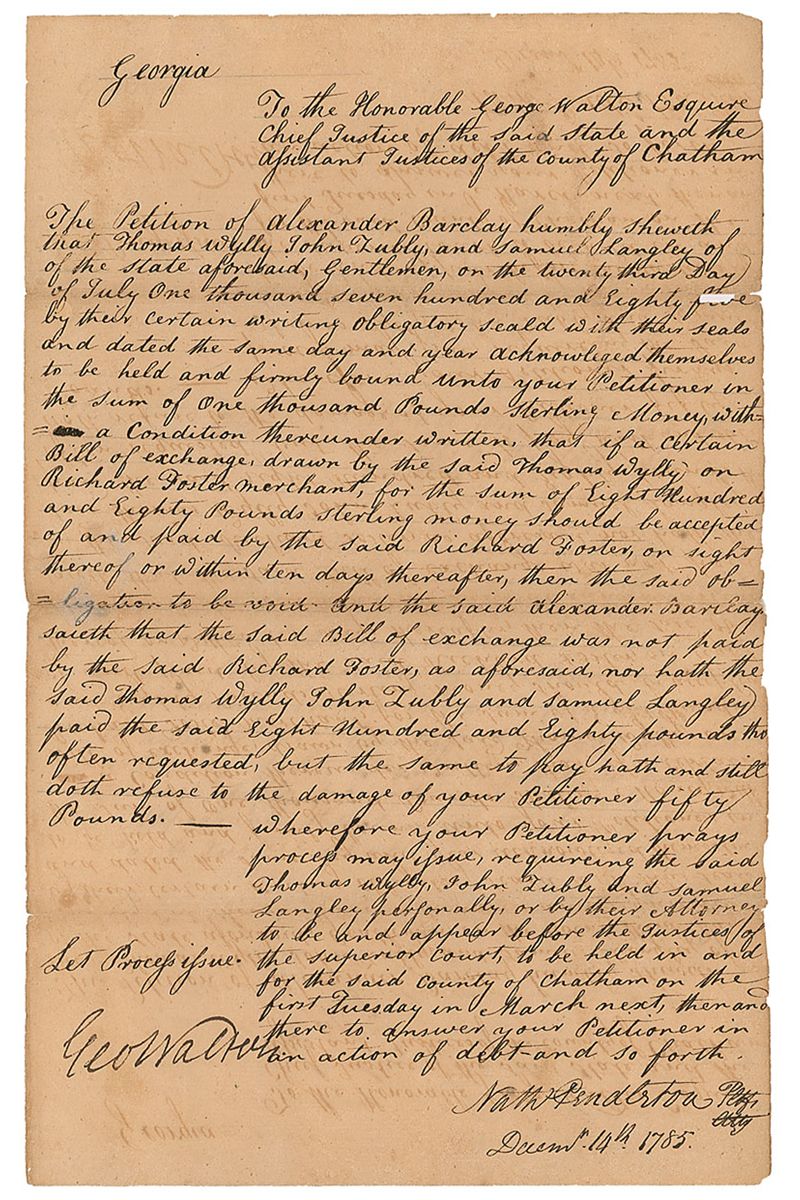 Georgia
To the Honorable George Walton Esquire
Chief Justice of the said State and the
assistant Justices of the county of Chatham
The Petition of Alexander Barclay humbly sheweth
that Thomas Wylly John Zubly, and Samuel Langley of
of the state aforesaid, Gentlemen, on the twenty third Day
of July One thousand seven hundred and Eighty five
by their certain writing obligatory seald with their seals
and dated the same day and year acknowleged themselves
to be held and firmly bound unto your Petitioner in
the sum of One thousand Pounds sterling Money, with=
= a Condition thereunder written, that if a certain
Bill of exchange, drawn by the said Thomas Wylly on
Richard Foster merchant, for the sum of Eight Hundred
and Eighty Pounds sterling money should be accepted
of and paid by the said Richard Foster, on sight
thereof or within ten days thereafter, then the said ob=
=ligation to be void and the said Alexander Barclay
saieth that the said Bill of exchange was not paid
by the said Richard Foster, as aforesaid, nor hath the
said Thomas Wylly John Zubly and Samuel Langley
paid the said Eight Hundred and Eighty pounds tho
often requested, but the same to pay hath and still
doth refuse to the damage of your Petitioner fifty
Pounds. —
Wherefore your Petitioner prays
process may issue, requireing the said
Thomas Wylly, John Zubly and Samuel
Langley personally, or by their Attorney
to be and appear before the Justices of
the superior Court, to be held in and
for the said County of Chatham on the
first Tuesday in March next, then and
there to answer your Petitioner in
an action of debt and so forth.
Let Process issue.
Geo Walton
Nathl Pendleton Petrs
Atty
Decemr. 14th 1785.